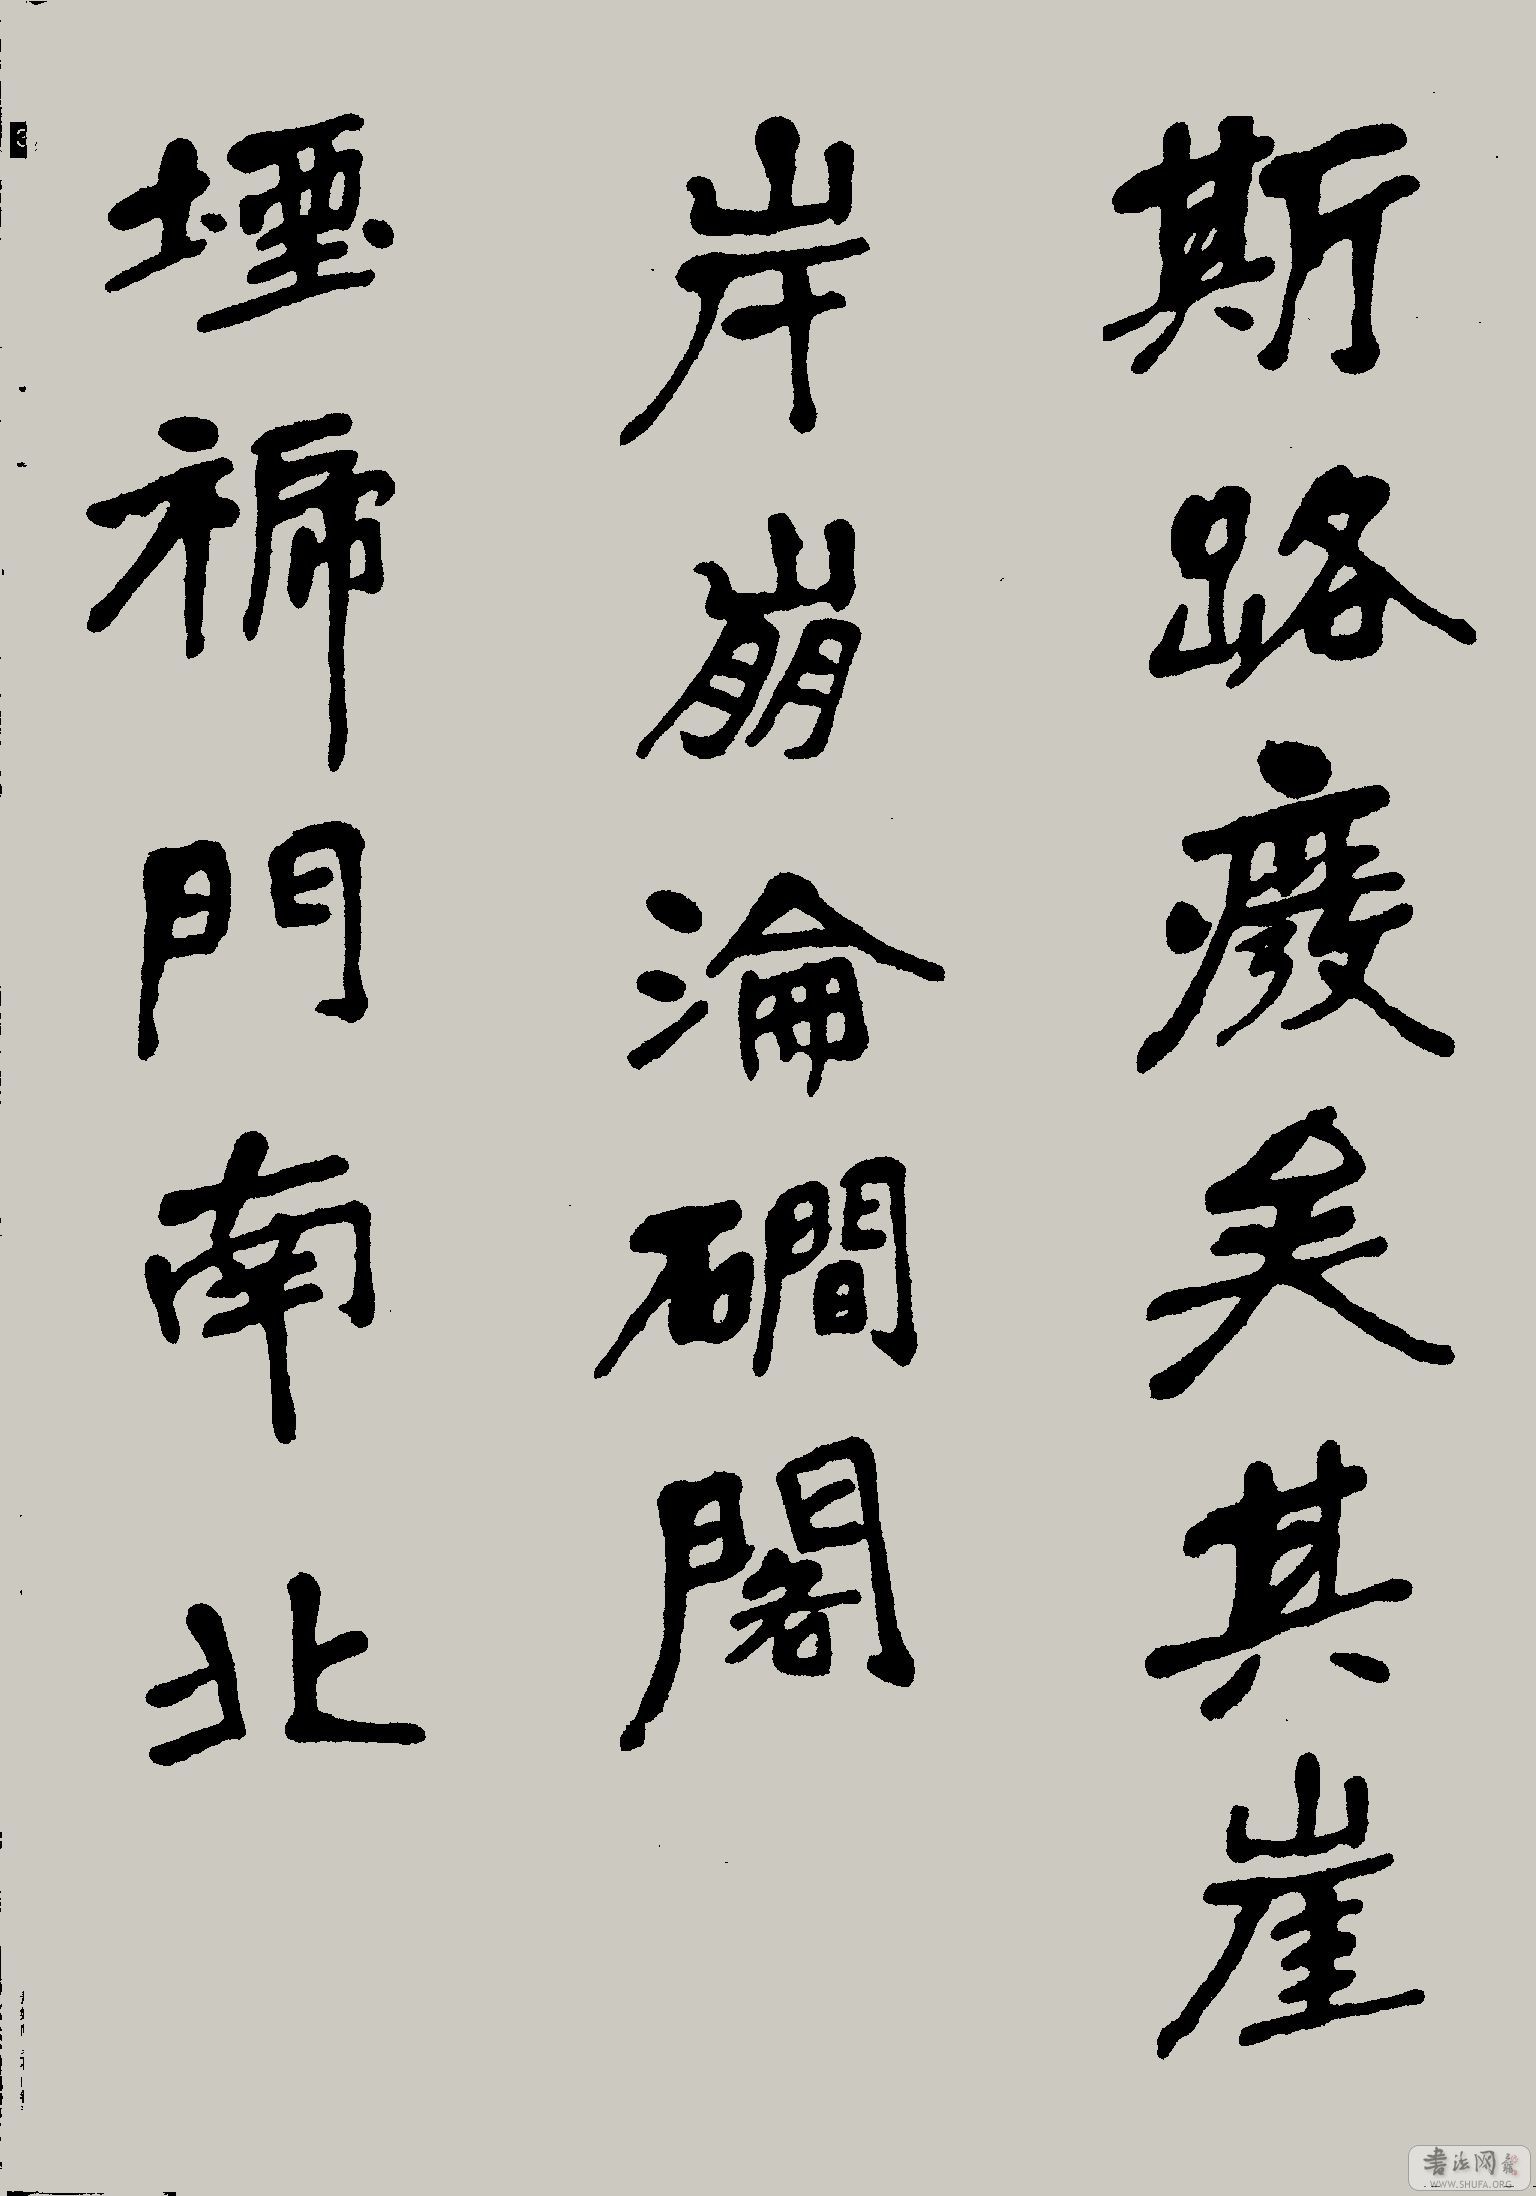 斯路癈矣其崖
岸崩淪磵閣
堙褫門南北
3
书法网
WWW.SHUFA.ORG